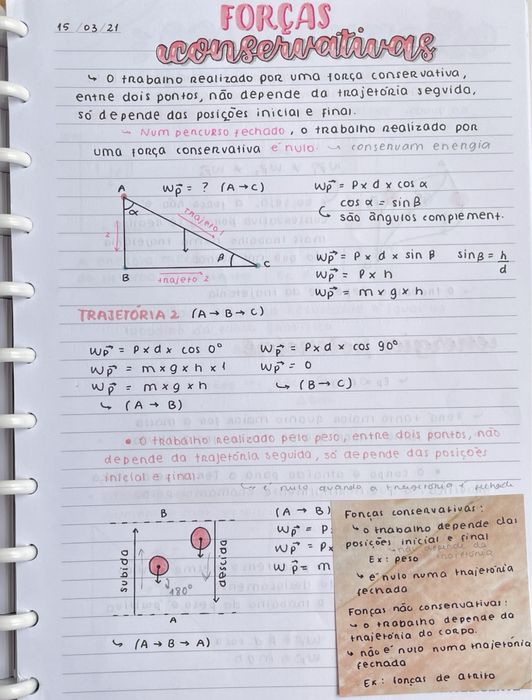 15 / 03 / 21
FORÇAS
conservativas
↳ O trabalho realizado por uma força conservativa,
entre dois pontos, não depende da trajetória seguida,
só depende das posições inicial e final.
→ Num percurso fechado, o trabalho realizado por
uma força conservativa é nulo. → conservam energia
A
α
Trajeto 1
2
β
B
trajeto 2
C
Wp⃗ = ? (A→C)
Wp⃗ = P x d x cos α
cos α = sin β
↳ são ângulos complement.
Wp⃗ = P x d x sin β sin β = h/d
Wp⃗ = P x h
Wp⃗ = m x g x h
TRAJETÓRIA 2 (A → B → C)
Wp⃗ = P x d x cos 0° Wp⃗ = P x d x cos 90°
Wp⃗ = m x g x h x 1 Wp⃗ = 0
Wp⃗ = m x g x h ↳ (B → C)
↳ (A → B)
• O trabalho realizado pelo peso, entre dois pontos, não
depende da trajetória seguida, só depende das posições
inicial e final.
↳ é nulo quando a trajetória é fechada
B
subida
descida
180°
A
↳ (A → B → A)
(A → B)
Wp⃗ = P
Wp⃗ = Px
Wp⃗ = m
Forças conservativas:
↳ o trabalho depende das
posições inicial e final
↳ não depende da
trajetória
Ex: peso
↳ é nulo numa trajetória
fechada
Forças não conservativas:
↳ o trabalho depende da
trajetória do corpo.
↳ não é nulo numa trajetória
fechada
Ex: forças de atrito